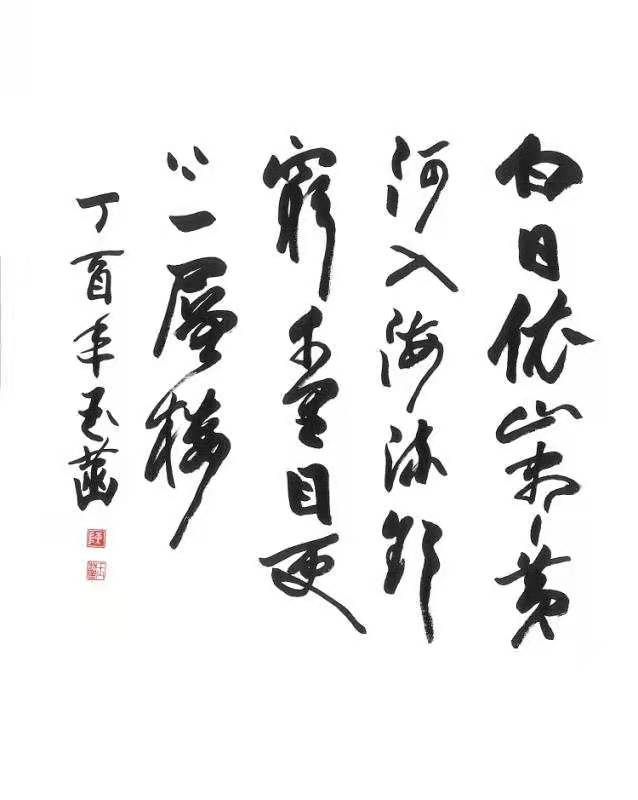 白日依山盡黄
河入海流欲
窮千里目更
上一層樓
丁酉年玉